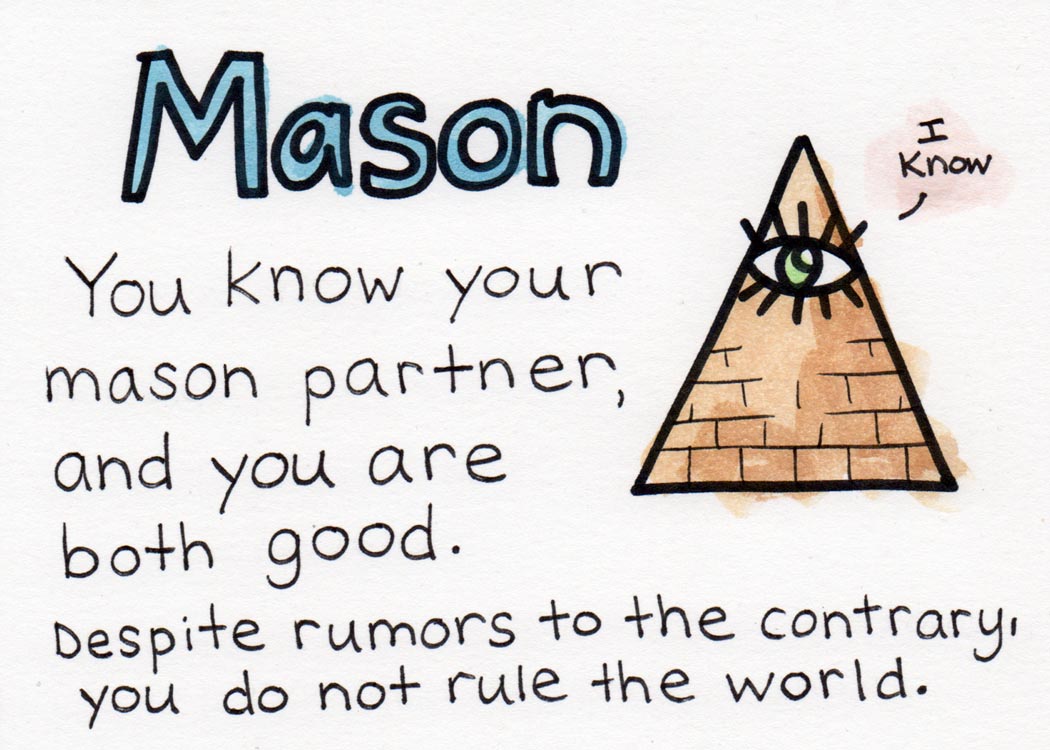 Mason
I
Know
You know your
mason partner,
and you are
both good.
Despite rumors to the contrary,
you do not rule the world.